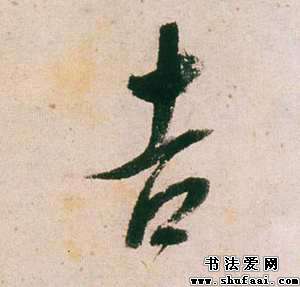 吉
书法爱网
www.shufaai.com